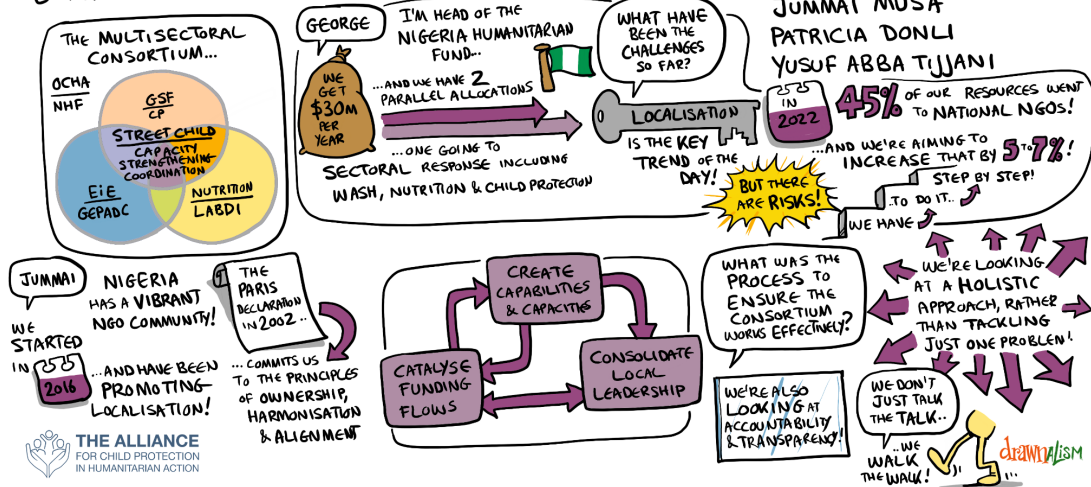 THE MULTISECTORAL
CONSORTIUM...
OCHA
NHF
GSF
CP
STREET CHILD
CAPACITY
STRENGTHENING
COORDINATION
EiE
GEPADC
NUTRITION
LABDI
GEORGE
WE
GET
$30M
PER
YEAR
I'M HEAD OF THE
NIGERIA HUMANITARIAN
FUND...
...AND WE HAVE 2
PARALLEL ALLOCATIONS
...ONE GOING TO
SECTORAL RESPONSE INCLUDING
WASH, NUTRITION & CHILD PROTECTION
WHAT HAVE
BEEN THE
CHALLENGES
SO FAR?
LOCALISATION
IS THE KEY
TREND OF THE
DAY!
JUMMAI MUSA
PATRICIA DONLI
YUSUF ABBA TIJJANI
IN
2022
45% OF OUR RESOURCES WENT
TO NATIONAL NGOs!
...AND WE'RE AIMING TO
INCREASE THAT BY 5 TO 7%!
STEP BY STEP!
..TO DO IT..
WE HAVE
BUT THERE
ARE RISKS!
JUMMAI
WE
STARTED
IN
2016
NIGERIA
HAS A VIBRANT
NGO COMMUNITY!
...AND HAVE BEEN
PROMOTING
LOCALISATION!
THE
PARIS
DECLARATION
IN 2002..
... COMMITS US
TO THE PRINCIPLES
OF OWNERSHIP,
HARMONISATION
& ALIGNMENT
CREATE
CAPABILITIES
& CAPACITIES
CATALYSE
FUNDING
FLOWS
CONSOLIDATE
LOCAL
LEADERSHIP
WHAT WAS THE
PROCESS TO
ENSURE THE
CONSORTIUM
WORKS EFFECTIVELY?
WE'RE ALSO
LOOKING AT
ACCOUNTABILITY
& TRANSPARENCY!
WE'RE LOOKING
AT A HOLISTIC
APPROACH, RATHER
THAN TACKLING
JUST ONE PROBLEM!
WE DON'T
JUST TALK
THE TALK..
..WE
WALK
THE WALK!
drawnalism
THE ALLIANCE
FOR CHILD PROTECTION
IN HUMANITARIAN ACTION